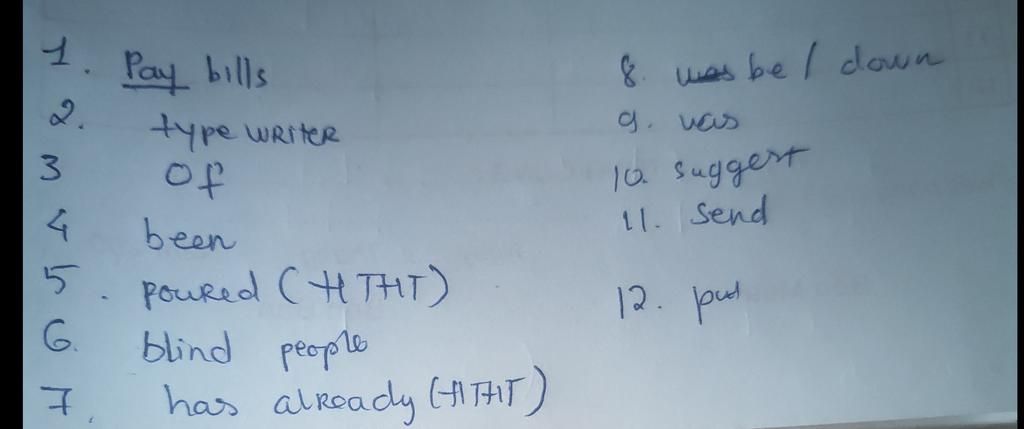 1. Pay bills
2. type WRITER
3 Of
4 been
5. poured (HTHT)
6. blind people
7. has already (HTHT)
8. was be / down
9. was
10. suggest
11. send
12. put